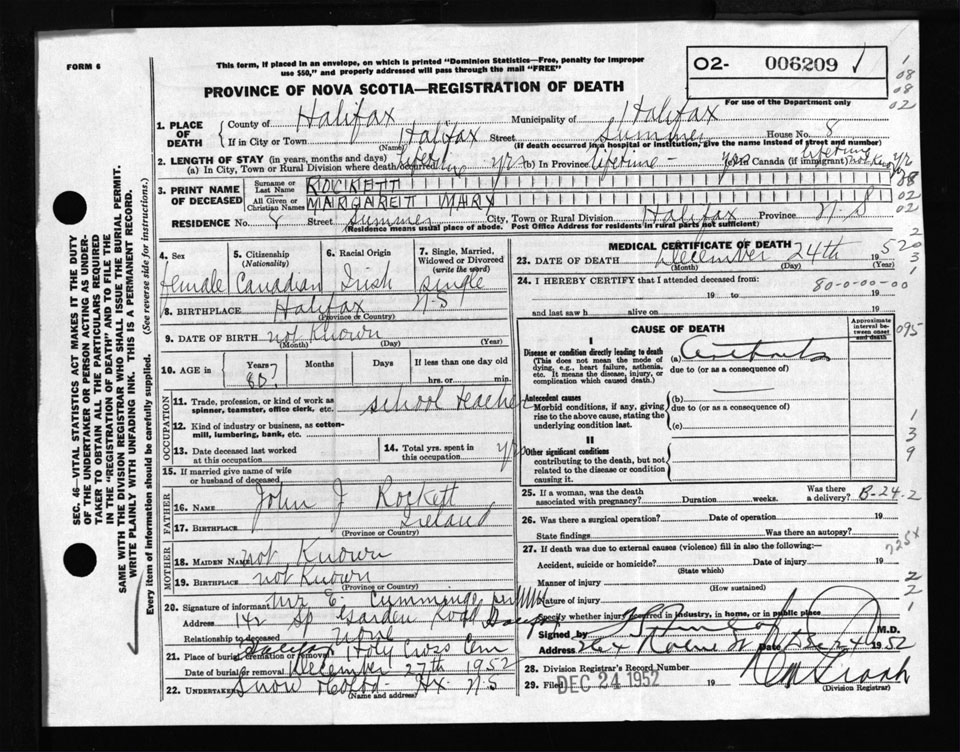 FORM 6
This form, if placed in an envelope, on which is printed "Dominion Statistics—Free, penalty for improper
use $50," and properly addressed will pass through the mail "FREE"
O2- 006209 ✓
PROVINCE OF NOVA SCOTIA—REGISTRATION OF DEATH
For use of the Department only
1. PLACE OF DEATH
County of Halifax Municipality of Halifax
If in City or Town Halifax Street Summer House No. 8
(Name) (If death occurred in a hospital or institution, give the name instead of street and number)
2. LENGTH OF STAY (in years, months and days)
(a) In City, Town or Rural Division where death occurred yrs (b) In Province lifetime - yrs (c) In Canada (if immigrant) lifetime yr
3. PRINT NAME OF DECEASED
Surname or Last Name ROCKETT
All Given or Christian Names MARGARET MARY
RESIDENCE No. 8 Street Summer City, Town or Rural Division Halifax Province N.S
(Residence means usual place of abode. Post Office Address for residents in rural parts not sufficient)
4. Sex Female
5. Citizenship (Nationality) Canadian
6. Racial Origin Irish
7. Single, Married, Widowed or Divorced (write the word) Single
8. BIRTHPLACE Halifax N-S
(Province or Country)
9. DATE OF BIRTH not Known
(Month) (Day) (Year)
10. AGE in Years 80? Months Days If less than one day old
hrs. or min.
OCCUPATION
11. Trade, profession, or kind of work as spinner, teamster, office clerk, etc. School teacher
12. Kind of industry or business, as cotton-mill, lumbering, bank, etc.
13. Date deceased last worked at this occupation
14. Total yrs. spent in this occupation yr
15. If married give name of wife or husband of deceased
FATHER
16. NAME John J Rockett
17. BIRTHPLACE Ireland
(Province or Country)
MOTHER
18. MAIDEN NAME not Known
19. BIRTHPLACE not Known
(Province or Country)
20. Signature of informant Mr E. Cummings
Address 142 Garden Road
Relationship to deceased None
21. Place of burial, cremation or removal Halifax Holy Cross Cem
Date of burial or removal December 27th 1952
22. UNDERTAKER Snow & Co Ltd - Hx - N-S
(Name and address)
MEDICAL CERTIFICATE OF DEATH
23. DATE OF DEATH December 24th 1952
(Month) (Day) (Year)
24. I HEREBY CERTIFY that I attended deceased from: 80-0-00-00
19 to 19
and last saw h alive on 19
CAUSE OF DEATH
Approximate interval between onset and death
I
Disease or condition directly leading to death
(This does not mean the mode of dying, e.g., heart failure, asthenia, etc. It means the disease, injury, or complication which caused death.)
(a)
due to (or as a consequence of)
Antecedent causes
Morbid conditions, if any, giving rise to the above cause, stating the underlying condition last.
(b)
due to (or as a consequence of)
(c)
II
Other significant conditions
contributing to the death, but not related to the disease or condition causing it.
25. If a woman, was the death associated with pregnancy? Duration weeks. Was there a delivery? B-24-2
26. Was there a surgical operation? Date of operation 19
State findings Was there an autopsy?
27. If death was due to external causes (violence) fill in also the following:—
Accident, suicide or homicide? Date of injury 19
(State which)
Manner of injury
(How sustained)
Nature of injury
Specify whether injury occurred in industry, in home, or in public place
Signed by M.D.
Address Date Dec 24 1952
28. Division Registrar's Record Number
29. Filed DEC 24 1952 19
(Division Registrar)
SEC. 46—VITAL STATISTICS ACT MAKES IT THE DUTY
OF THE UNDERTAKER OR PERSON ACTING AS UNDER-
TAKER TO OBTAIN ALL THE PARTICULARS REQUIRED
IN THE "REGISTRATION OF DEATH" AND TO FILE THE
SAME WITH THE DIVISION REGISTRAR WHO SHALL ISSUE THE BURIAL PERMIT.
WRITE PLAINLY WITH UNFADING INK. THIS IS A PERMANENT RECORD.
Every item of information should be carefully supplied. (See reverse side for instructions.)
1
08
08
02
08
02
2
3
1
095
1
3
9
2
2
1